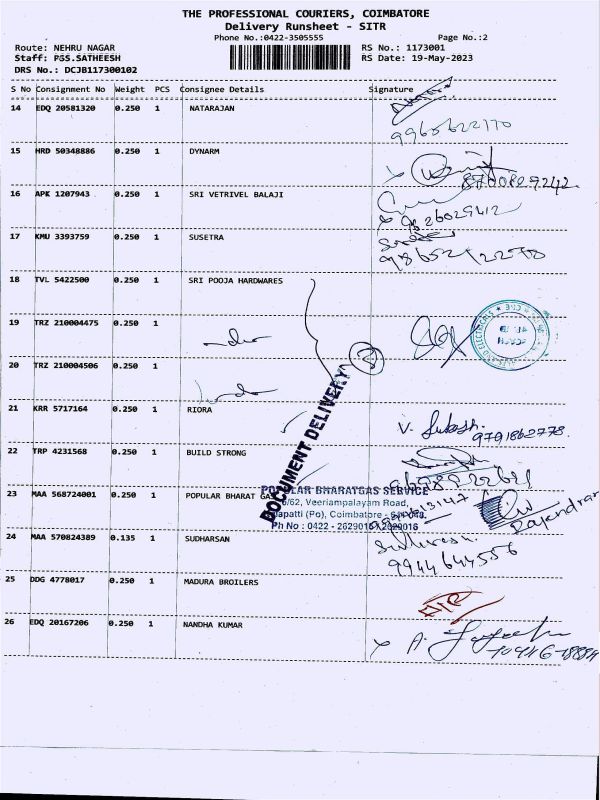 THE PROFESSIONAL COURIERS, COIMBATORE
Delivery Runsheet - SITR
Phone No.:0422-3505555 Page No.:2
Route: NEHRU NAGAR RS No.: 1173001
Staff: PSS.SATHEESH RS Date: 19-May-2023
DRS No.: DCJB117300102
S No Consignment No Weight PCS Consignee Details Signature
14 EDQ 20581320 0.250 1 NATARAJAN
9965622170
15 HRD 50348886 0.250 1 DYNARM
16 APK 1207943 0.250 1 SRI VETRIVEL BALAJI
17 KMU 3393759 0.250 1 SUSETRA
18 TVL 5422500 0.250 1 SRI POOJA HARDWARES
19 TRZ 210004475 0.250 1
20 TRZ 210004506 0.250 1
DOCUMENT DELIVERY
21 KRR 5717164 0.250 1 RIORA
9791862778
22 TRP 4231568 0.250 1 BUILD STRONG
23 MAA 568724001 0.250 1 POPULAR BHARAT GAS
POPULAR BHARATGAS SERVICE
6/62, Veeriampalayam Road,
Coimbatore
Ph No : 0422 -
Rajendran
24 MAA 570824389 0.135 1 SUDHARSAN
9944644556
25 DDG 4778017 0.250 1 MADURA BROILERS
26 EDQ 20167206 0.250 1 NANDHA KUMAR